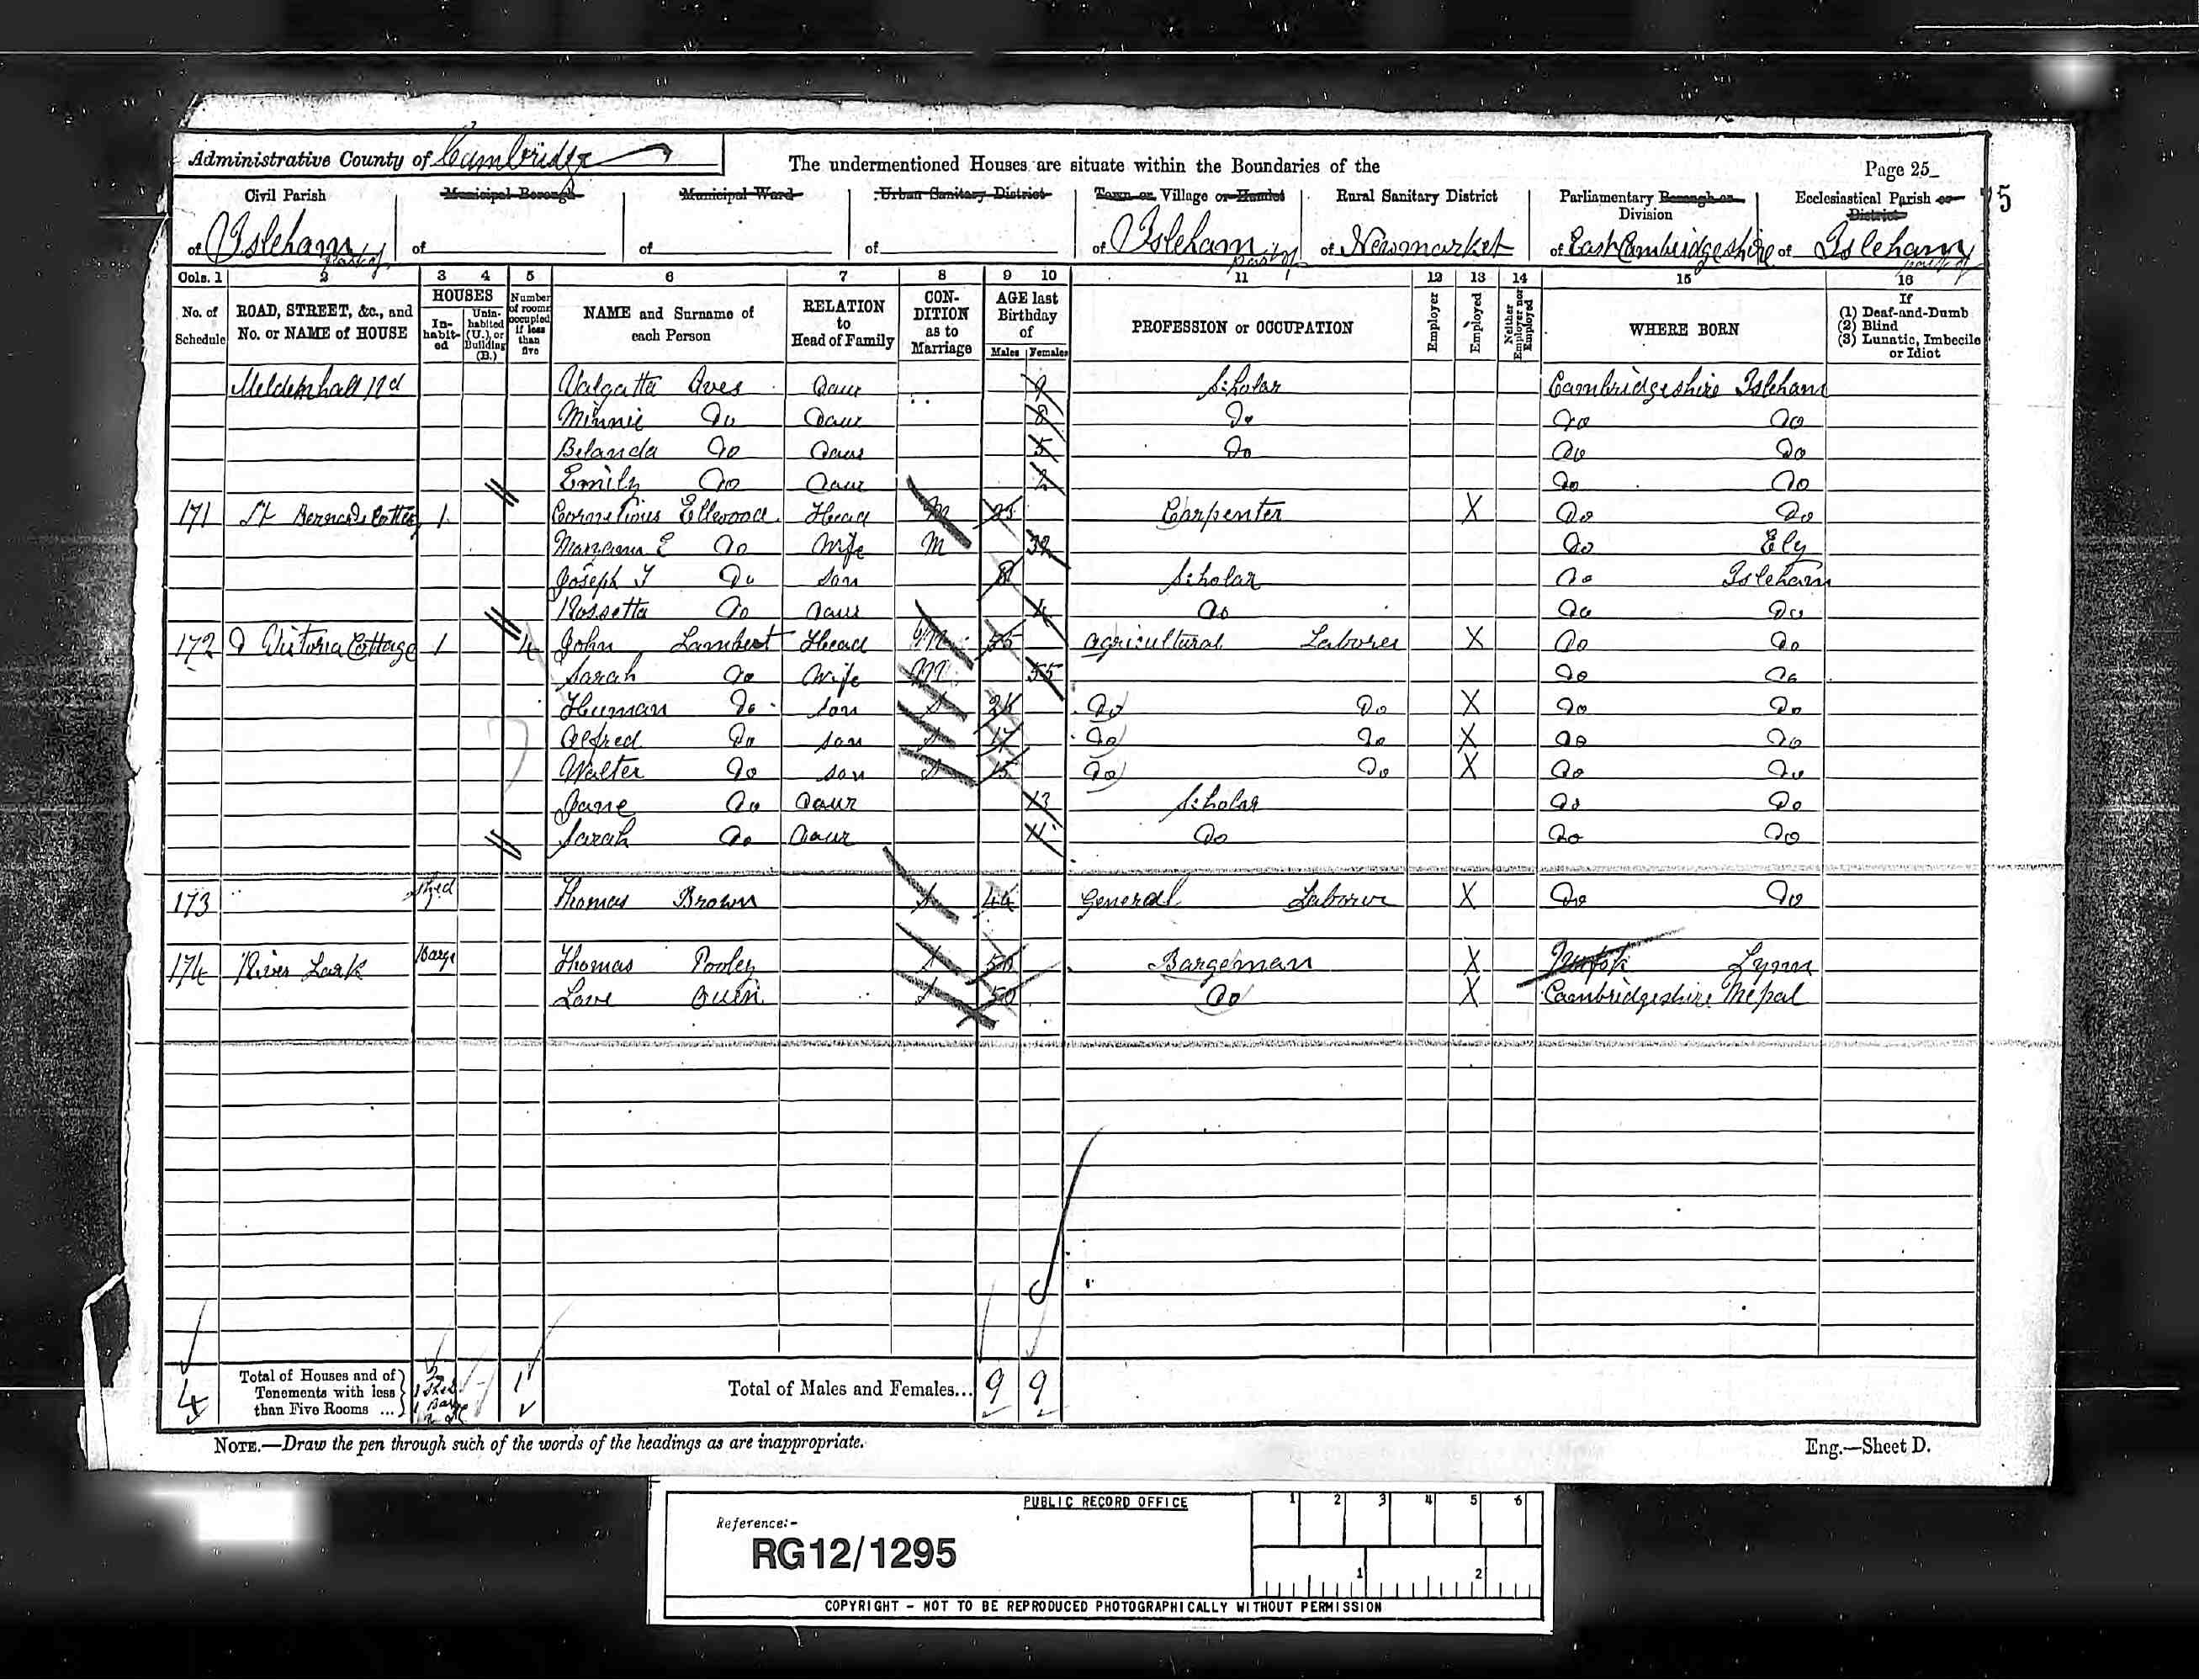 Administrative County of Cambridge The undermentioned Houses are situate within the Boundaries of the Page 25
75
Civil Parish Municipal Borough Municipal Ward Urban Sanitary District Town or Village or Hamlet Rural Sanitary District Parliamentary Borough or Division Ecclesiastical Parish or District
of Isleham part of of of of of Isleham part of of Newmarket of East Cambridgeshire of Isleham part of
Cols. 1 2 3 4 5 6 7 8 9 10 11 12 13 14 15 16
No. of Schedule ROAD, STREET, &c., and No. or NAME of HOUSE HOUSES In-habit-ed Unin-habited (U.), or Building (B.) Number of rooms occupied if less than five NAME and Surname of each Person RELATION to Head of Family CON-DITION as to Marriage AGE last Birthday of Males Females PROFESSION or OCCUPATION Employer Employed Neither Employer nor Employed WHERE BORN If (1) Deaf-and-Dumb (2) Blind (3) Lunatic, Imbecile or Idiot
Mildenhall Rd Valgatta Aves Daur 9 Scholar Cambridgeshire Isleham
Minnie Do Daur 8 Do Do Do
Belanda Do Daur 5 Do Do Do
Emily Do Daur 2 Do Do
171 St Bernards 1 Cornelious Ellwood Head M 35 Carpenter X Do Do
E Do Wife M 32 Do Ely
Joseph Do Son 8 Scholar Do Isleham
Rossetta Do Daur 4 Do Do Do
172 Victoria Cottage 1 4 John Lambert Head M 55 Agricultural Laborer X Do Do
Sarah Do Wife M 55 Do Do
Human Do Son S Do Do X Do Do
Alfred Do Son S 17 Do Do X Do Do
Walter Do Son S 15 Do Do X Do Do
Jane Do Daur 13 Scholar Do Do
Sarah Do Daur 11 Do Do Do
173 Shed 1 Thomas Brown S 44 General Laborer X Do Do
174 River Lark Barge Thomas Pooley S Bargeman X Norfolk Lynn
Love Quen S 50 Do X Cambridgeshire Mepal
4 Total of Houses and of Tenements with less than Five Rooms ... 2 1 Shed 1 Barge 1 Total of Males and Females... 9 9
NOTE.—Draw the pen through such of the words of the headings as are inappropriate. Eng.—Sheet D.
PUBLIC RECORD OFFICE 1 2 3 4 5 6
Reference:-
RG12/1295
1 2
COPYRIGHT - NOT TO BE REPRODUCED PHOTOGRAPHICALLY WITHOUT PERMISSION